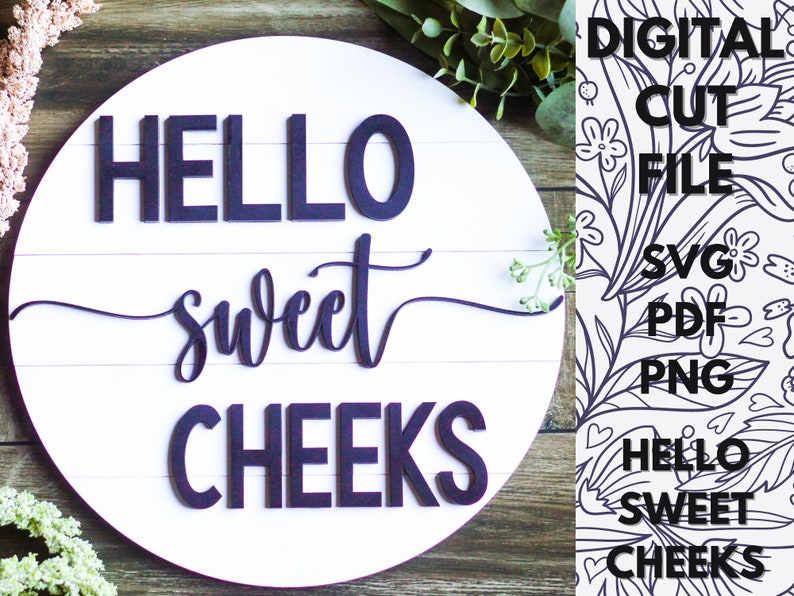 HELLO
sweet
CHEEKS
DIGITAL
CUT
FILE
SVG
PDF
PNG
HELLO
SWEET
CHEEKS